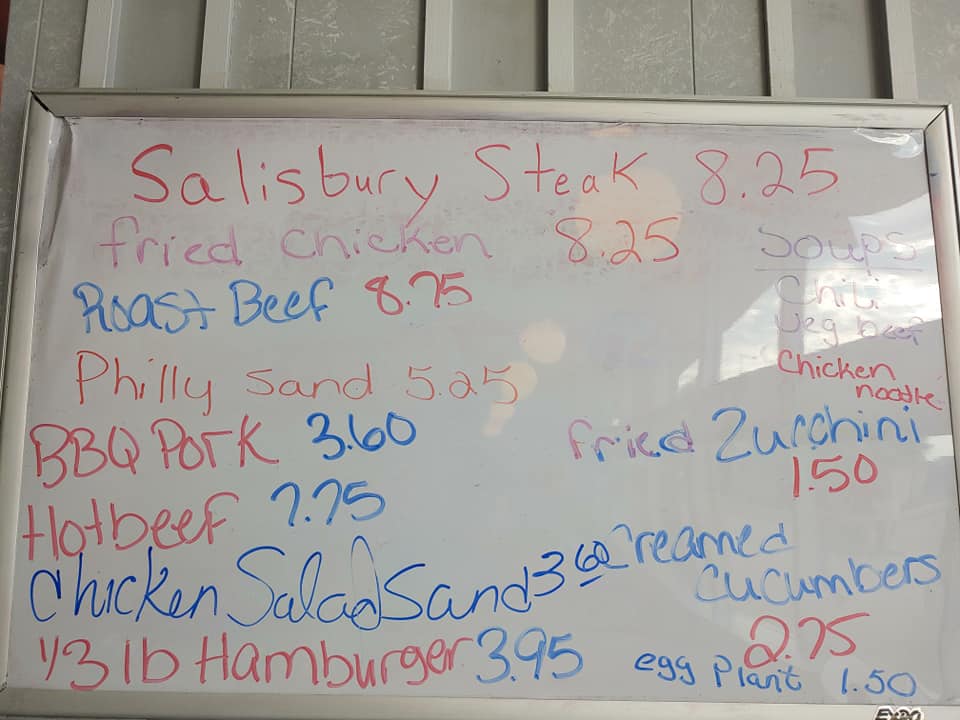 Salisbury Steak 8.25
fried chicken 8.25
Roast Beef 8.75
Philly sand 5.25
BBQ Pork 3.60
Hotbeef 7.75
Chicken Salad Sand 3.60
1/3 lb Hamburger 3.95
Soups
Chili
Veg beef
Chicken
noodle
fried Zucchini
1.50
Creamed
cucumbers
2.75
egg plant 1.50
EXPO